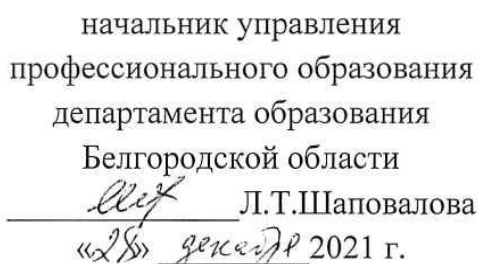 начальник управления
профессионального образования
департамента образования
Белгородской области
Л.Т.Шаповалова
«28» декабря 2021 г.